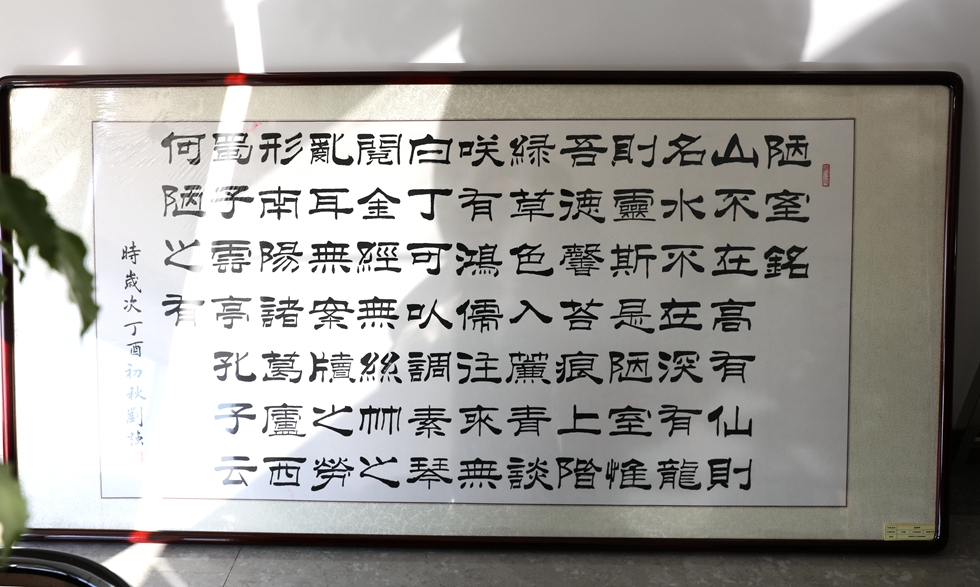 陋室銘
山不在高有仙則
名水不在深有龍
則靈斯是陋室惟
吾德馨苔痕上階
綠草色入簾青談
咲有鴻儒往來無
白丁可以調素琴
閱金經無絲竹之
亂耳無案牘之勞
形南陽諸葛廬西
蜀子雲亭孔子云
何陋之有
時歲次丁酉初秋劉